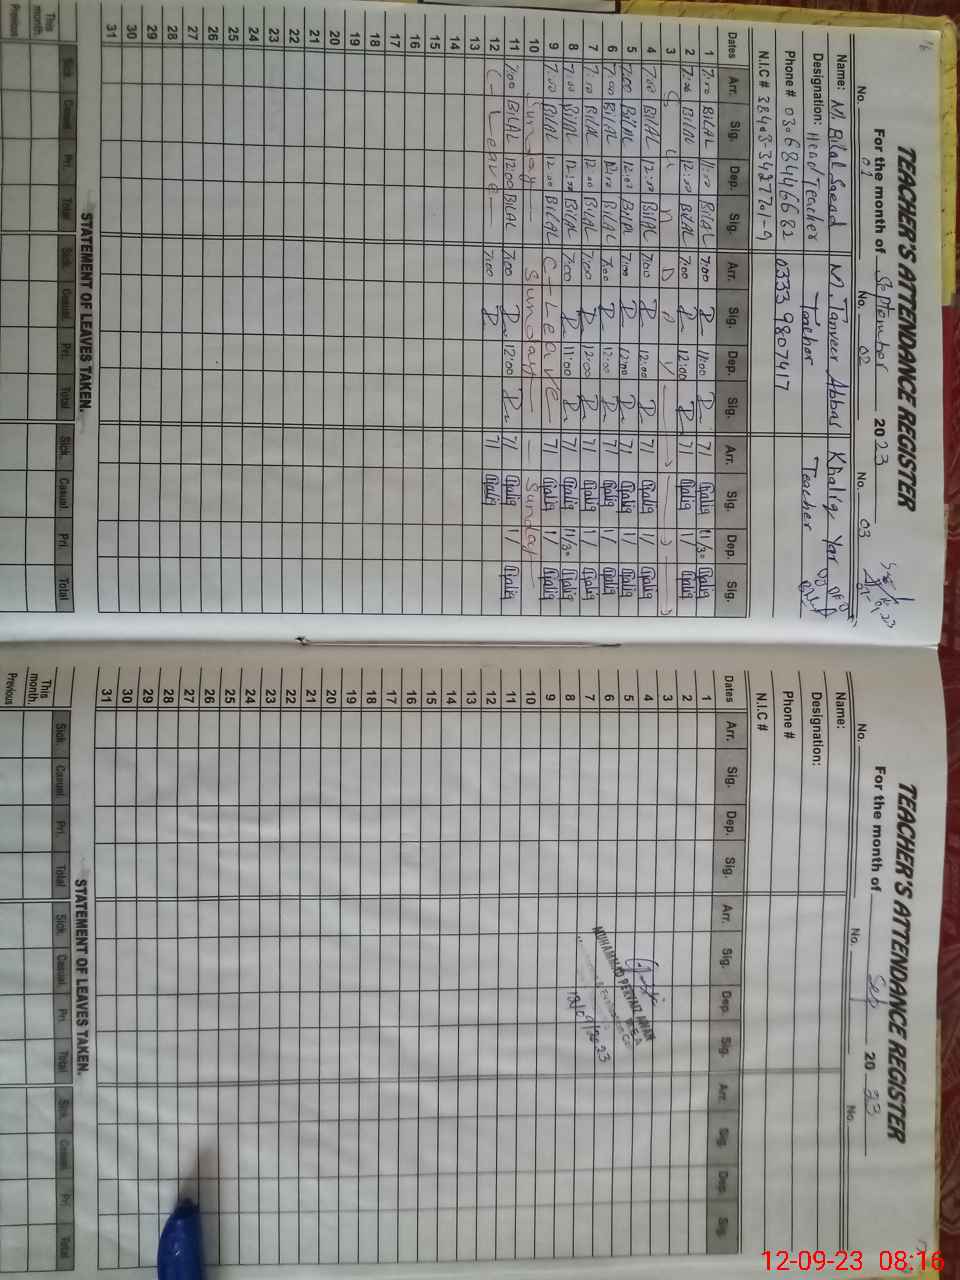 TEACHER'S ATTENDANCE REGISTER
For the month of September 2023
No. 01 No. 02 No. 03
Name: M. Bilal Saeed M. Tanveer Abbas Khaliq Yar
Designation: Head Teacher Teacher Teacher
Phone # 03068446682 0333 9807417
N.I.C # 38403-3427701-9
Dates Arr. Sig. Dep. Sig. Arr. Sig. Dep. Sig. Arr. Sig. Dep. Sig.
1 7:00 BILAL 11:00 BILAL 7:00 11:00 7/ Khaliq 11/30 Khaliq
2 7:00 BILAL 12:00 BILAL 7:00 12:00 7/ Khaliq 1/ Khaliq
3 S U N D A Y
4 7:00 BILAL 12:00 BILAL 7:00 12:00 7/ Khaliq 1/ Khaliq
5 7:00 BILAL 12:00 BILAL 7:00 12:00 7/ Khaliq 1/ Khaliq
6 7:00 BILAL 12:00 BILAL 7:00 12:00 7/ Khaliq 1/ Khaliq
7 7:00 BILAL 12:00 BILAL 7:00 12:00 7/ Khaliq 1/ Khaliq
8 7:00 BILAL 12:00 BILAL 7:00 11:00 7/ Khaliq 11/30 Khaliq
9 7:00 BILAL 12:00 BILAL C-Leave 7/ Khaliq 1/ Khaliq
10 Sunday Sunday Sunday
11 7:00 BILAL 12:00 BILAL 7:00 12:00 7/ Khaliq 1/ Khaliq
12 C-Leave 7:00 7/ Khaliq
13
14
15
16
17
18
19
20
21
22
23
24
25
26
27
28
29
30
31
STATEMENT OF LEAVES TAKEN.
Sick Casual Pri. Total Sick. Casual. Pri. Total Sick. Casual. Pri. Total
This month
Previous
TEACHER'S ATTENDANCE REGISTER
For the month of Sep 2023
No. No. No.
Name:
Designation:
Phone #
N.I.C #
Dates Arr. Sig. Dep. Sig. Arr. Sig. Dep. Sig. Arr. Sig. Dep. Sig.
1
2
3
4
5
6
7
8
9
10
11
12
13
14
15
16
17
18
19
20
21
22
23
24
25
26
27
28
29
30
31
MUHAMMAD PERVAIZ AWAN
M.E.A
12/09/2023
STATEMENT OF LEAVES TAKEN.
Sick. Casual Pri. Total Sick. Casual. Pri. Total Sick. Casual. Pri. Total
This month.
Previous
12-09-23 08:16